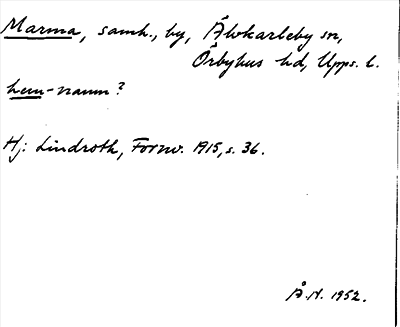 Marma, samh., by, Älvkarleby sn,
Örbyhus hd, Upps. l.
hem-namn?
Hj. Lindroth, Fornv. 1915, s. 36.
Å.N. 1952.